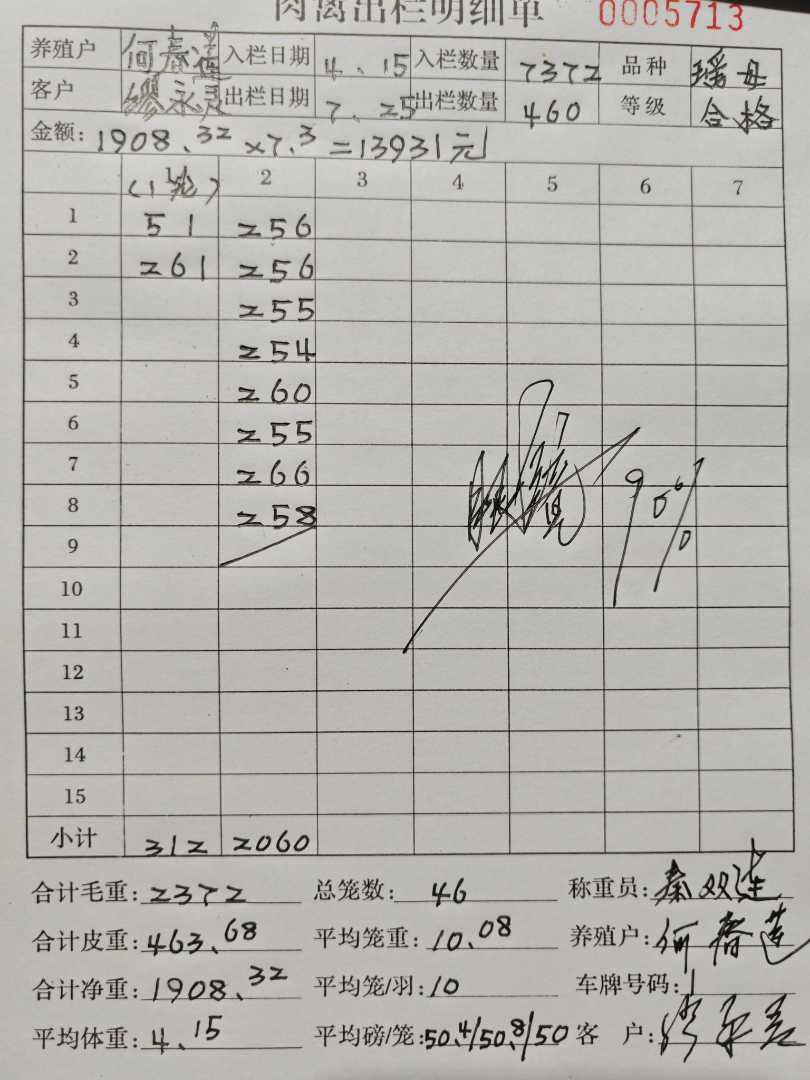 肉禽出栏明细单 0005713
养殖户 何春莲 入栏日期 4.15 入栏数量 7372 品种 瑶母
客户 缪永 出栏日期 7.25 出栏数量 460 等级 合格
金额: 1908.32 ×7.3 =13931元
(1轮) 2 3 4 5 6 7
1 51 256
2 261 256
3 255
4 254
5 260
6 255
7 266
8 258
9
10
11
12
13
14
15
小计 312 2060
合计毛重: 2372 总笼数: 46 称重员: 秦双连
合计皮重: 463.68 平均笼重: 10.08 养殖户: 何春莲
合计净重: 1908.32 平均笼/羽: 10 车牌号码:
平均体重: 4.15 平均磅/笼: 50.4/50.8/50 客 户: 缪永